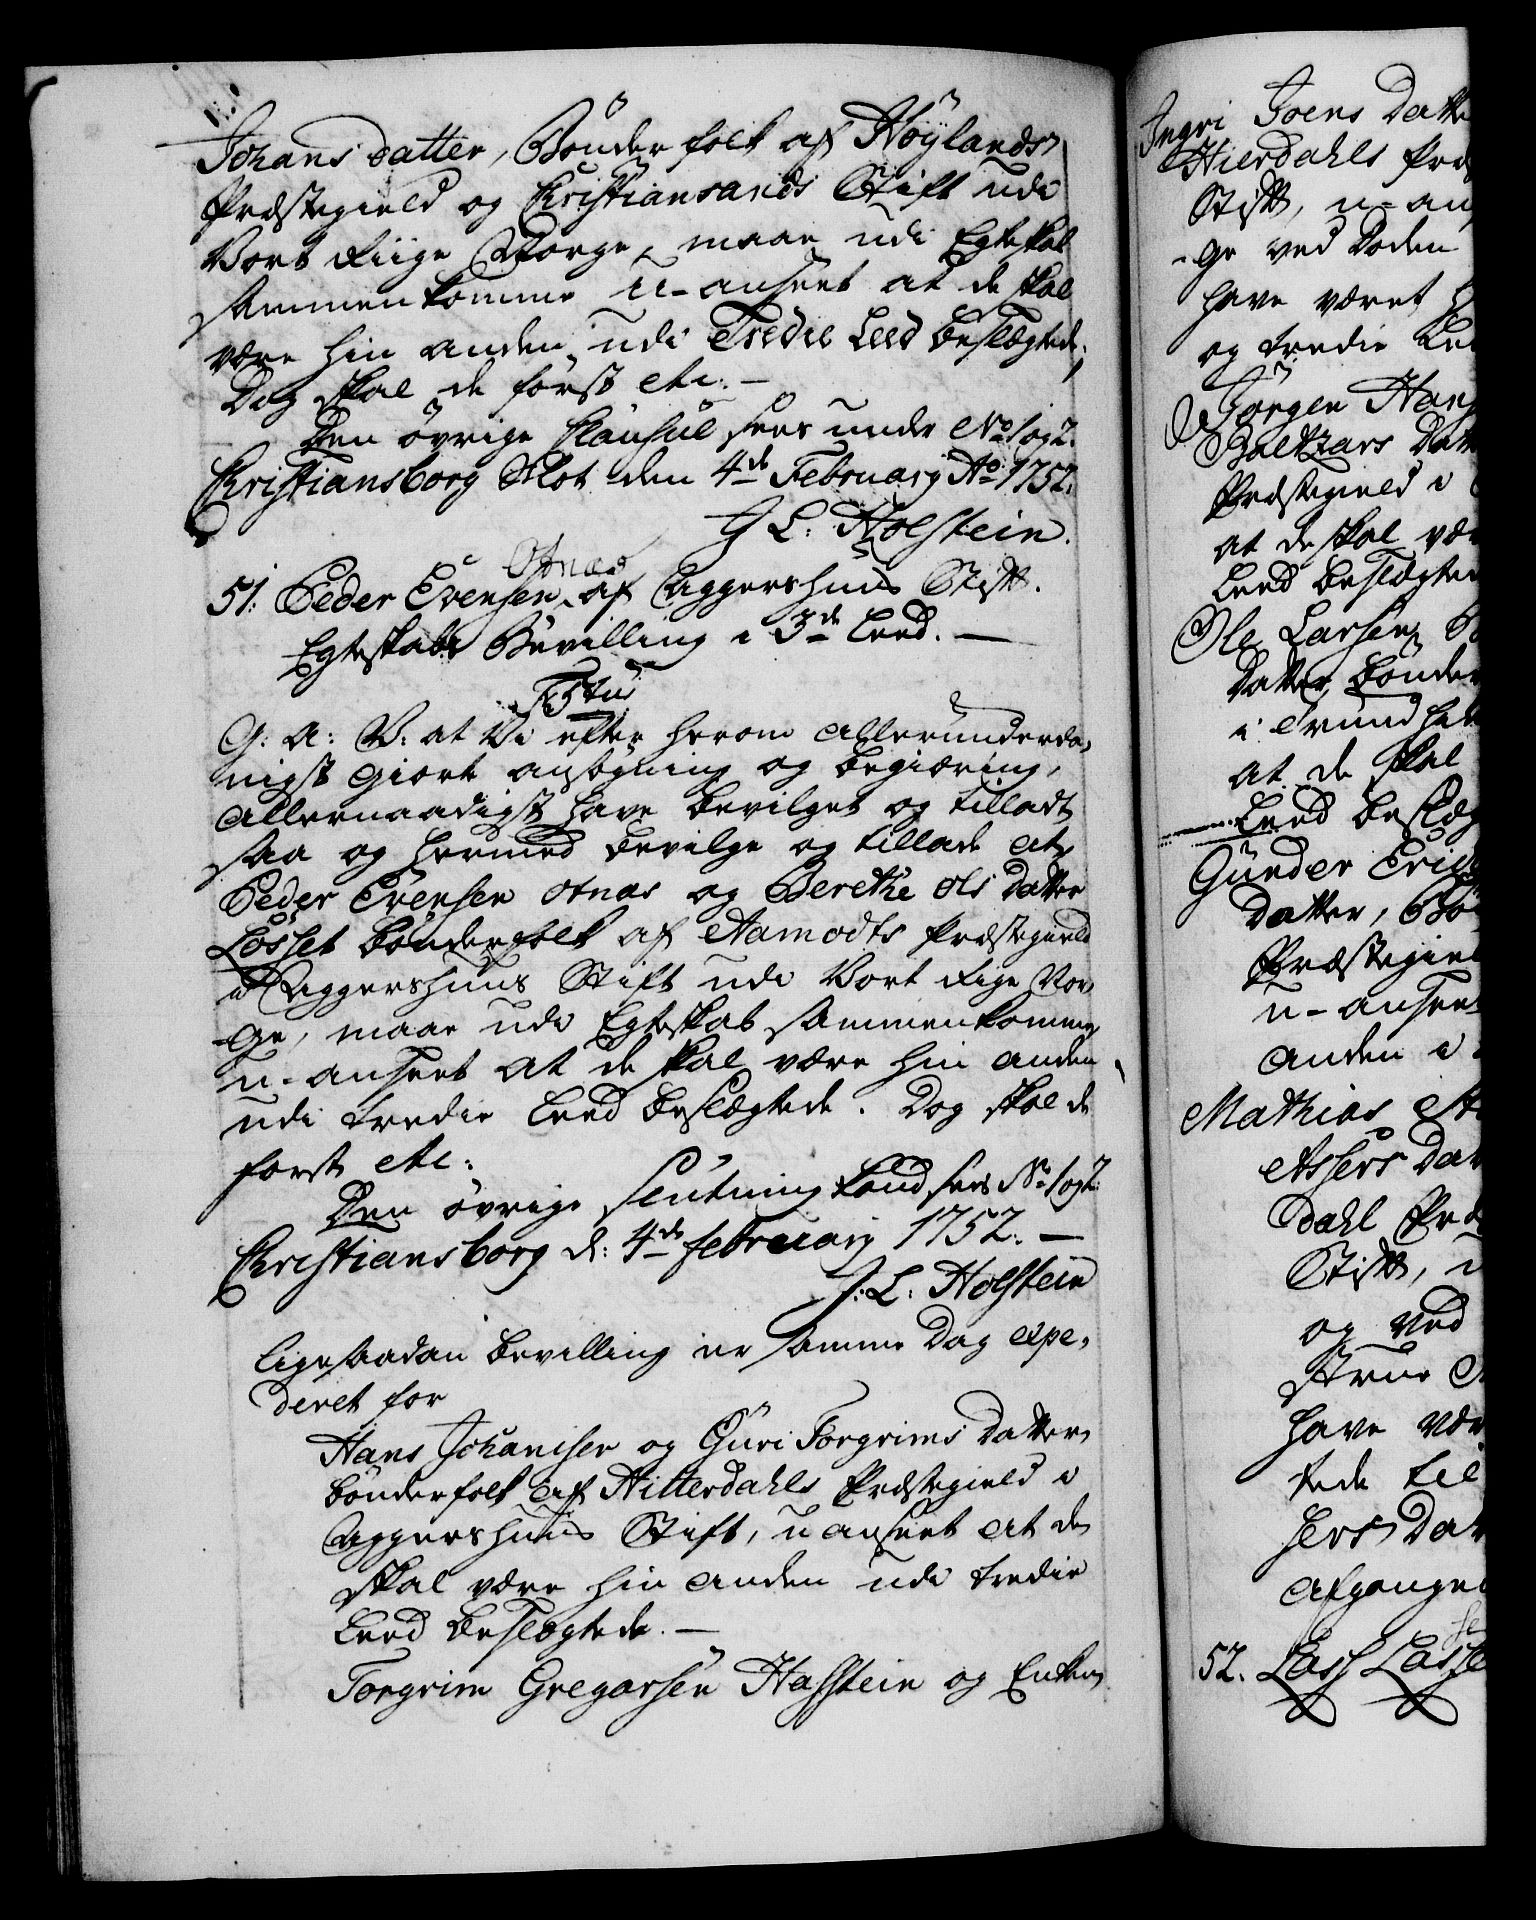 Johans datter, Bönder folk af Höylands
Præstegield og Christiansands Stift udi
Vort Riige Norge, maae udi Egteskab
sammenkomme u-anseet at de skal
være hin anden udi Tredie Leed beslægtede;
Dog skal de först etc: —
Den övrige Clausul sees under No 1 og 2.
Christiansborg Slot den 4de Februarij Ao 1752.
J L: Holstein.
Otnæs
51. Peder Evensen, af Aggershuus Stift.
Egteskabs Bevilling i 3de Leed. —
F 5tus
G: A: V: at Vi efter herom allerunderda-
nigst giorte ansögning og begiæring,
allernaadigst have bevilget og tilladt
saa og hermed bevilge og tillade at
Peder Evensen Otnæs og Berethe Ols Datter
Lösset bönderfolk af Aamodts Præstegield
i Aggershuus Stift udi Vort Rige Nor-
ge, maae udi Egteskab sammenkomme,
u-anseet at de skal være hin anden
udi tredie Leed beslægtede. Dog skal de
först etc:
Den övrige slutning kand sees No 1 og 2.
Christiansborg d: 4de februarij 1752. —
J. L. Holstein
Ligesaadan bevilling er samme Dag expe-
deret for
Hans Johansen og Guri Torgrims Datter
bönderfolk af Hitterdahls Præstegield i
Aggershuus Stift, uanseet at de
skal være hin anden udi tredie
Leed beslægtede. —
Torgrim Gregarsen Hafstein og Enken
Ingri Joens Datte
Hierdahls Præ
Stift, u-an
-ge ved Döden
have været h
og tredie Lee
Jörgen Hans
Baltzars Datt
Præstegield i
at de skal vær
Leed beslægted
Ole Larsen B
Datter, bönder
i Trundhe
at de skal
Leed beslæg
Gunder Erichs
Datter, Bö
Præstegiel
u-ansee
anden i
Mathias
Assers Dat
dahl Præ
Stift, u
og ved
have vær
tede til
sers Dat
afgangne
52. Lass Lasse